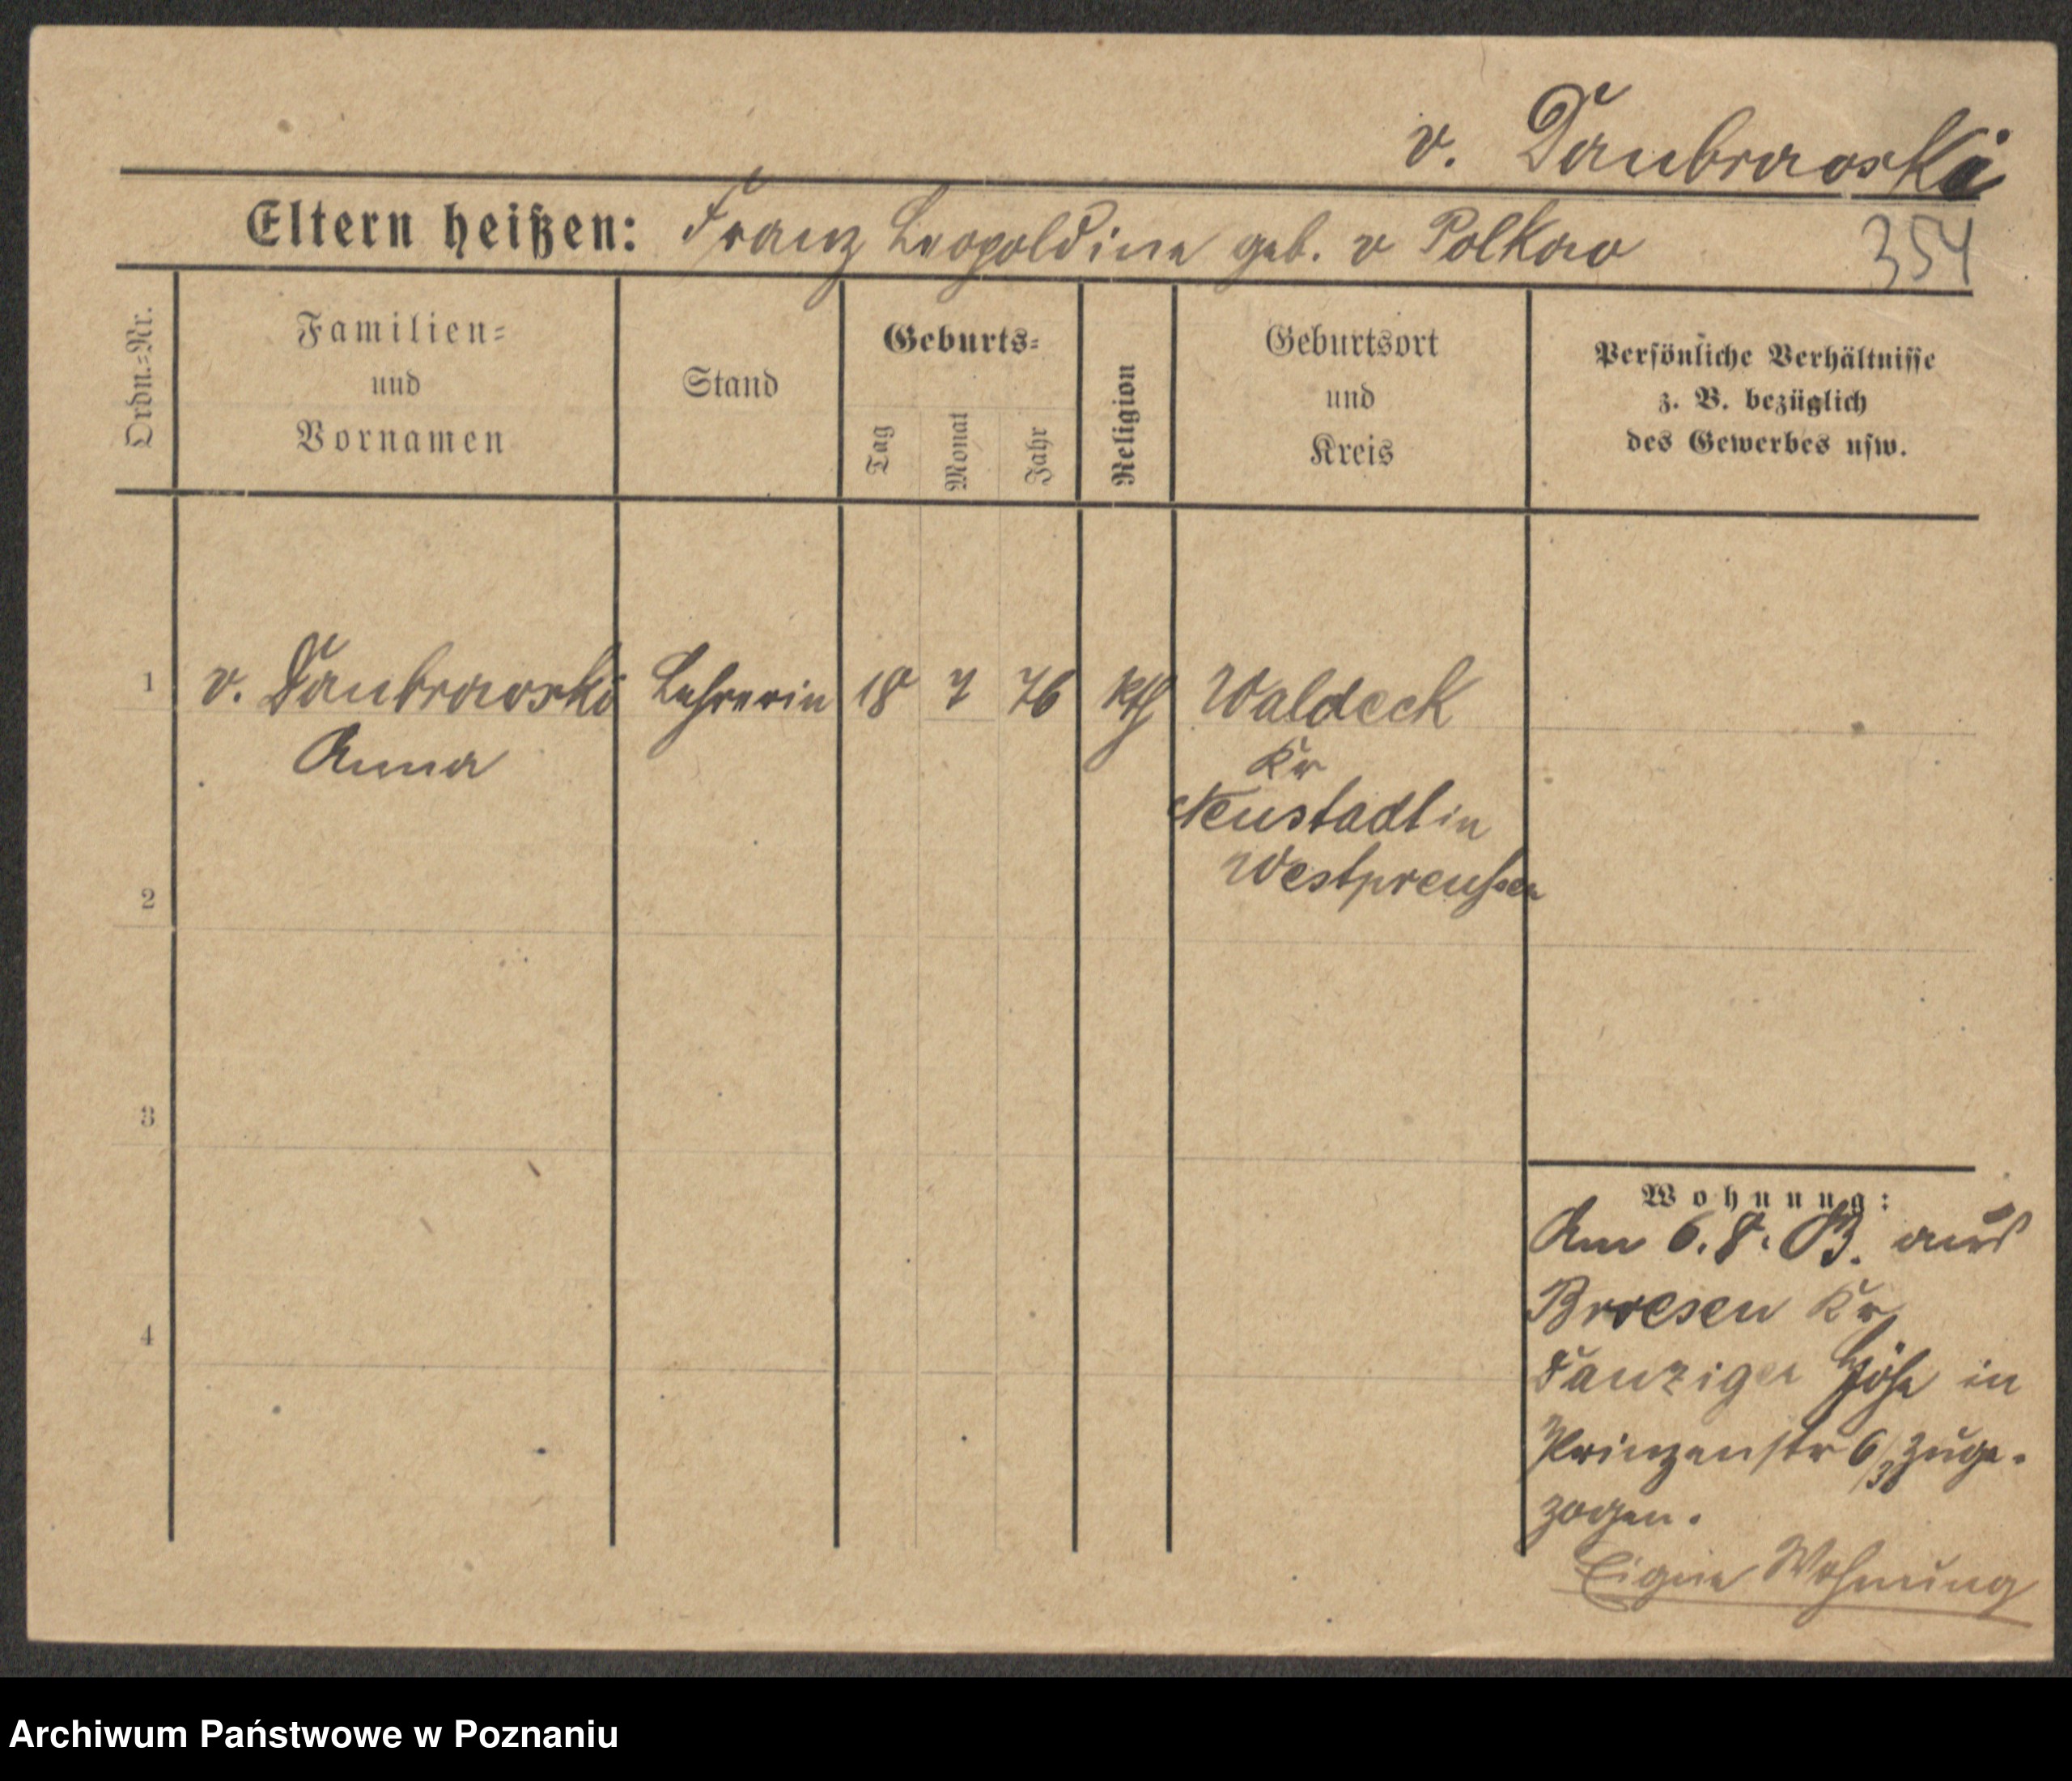 v. Daubrawski
Eltern heißen: Franz Leopoldine geb. v Polkao
354
Ordn.=Nr.
Familien=
und
Vornamen
Stand
Geburts=
Tag
Monat
Jahr
Religion
Geburtsort
und
Kreis
Persönliche Verhältnisse
z. B. bezüglich
des Gewerbes usw.
1 v. Daubrawski Lehrerin 18 7 76 kth Waldeck
Anna Kr
Neustadt in
Westpreußen
2
3
4
Wohnung:
Am 6.8.03. aus
Broesen Kr
Danziger Höhe in
Prinzenstr 6/ zuge-
zogen.
Eigene Wohnung
Archiwum Państwowe w Poznaniu